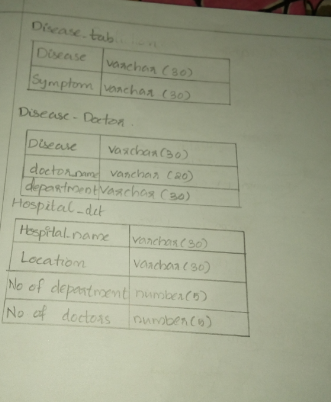 Disease_tab
Disease varchar(30)
Symptom varchar(30)
Disease-Doctor
Disease varchar(30)
doctor_name varchar(20)
department varchar(30)
Hospital_det
Hospital_name varchar(30)
Location varchar(30)
No of department number(5)
No of doctors number(5)